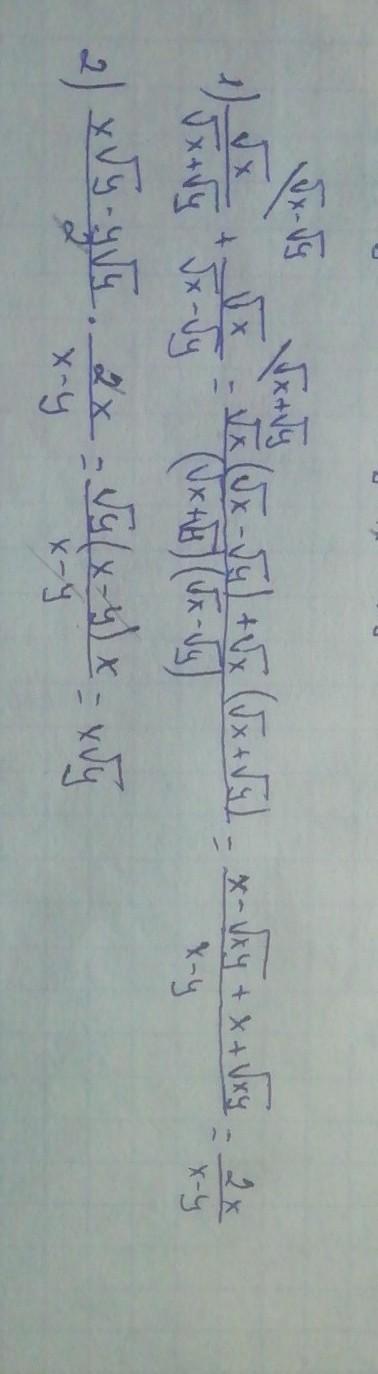 1) √x/(√x+√y) \√x-√y + √x/(√x-√y) \√x+√y = (√x(√x-√y)+√x(√x+√y))/((√x+√y)(√x-√y)) = (x-√xy+x+√xy)/(x-y) = 2x/(x-y)
2) (x√y-y√y)/2 · 2x/(x-y) = (√y(x-y)x)/(x-y) = x√y